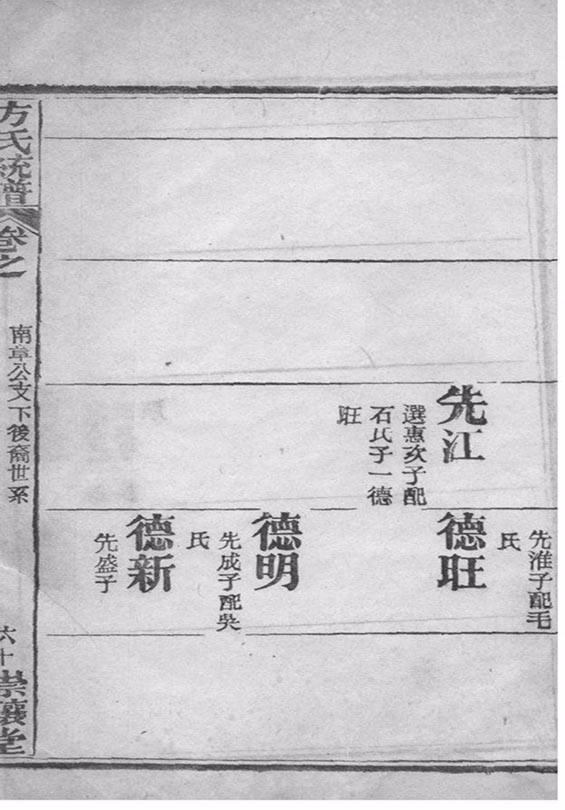 先江
選惠次子配
石氏子一德
旺
先淮子配毛
氏
德旺
德明
先成子配吳
氏
德新
先盛子
方氏統譜
卷之
南章公支下後裔世系
六十
崇讓堂